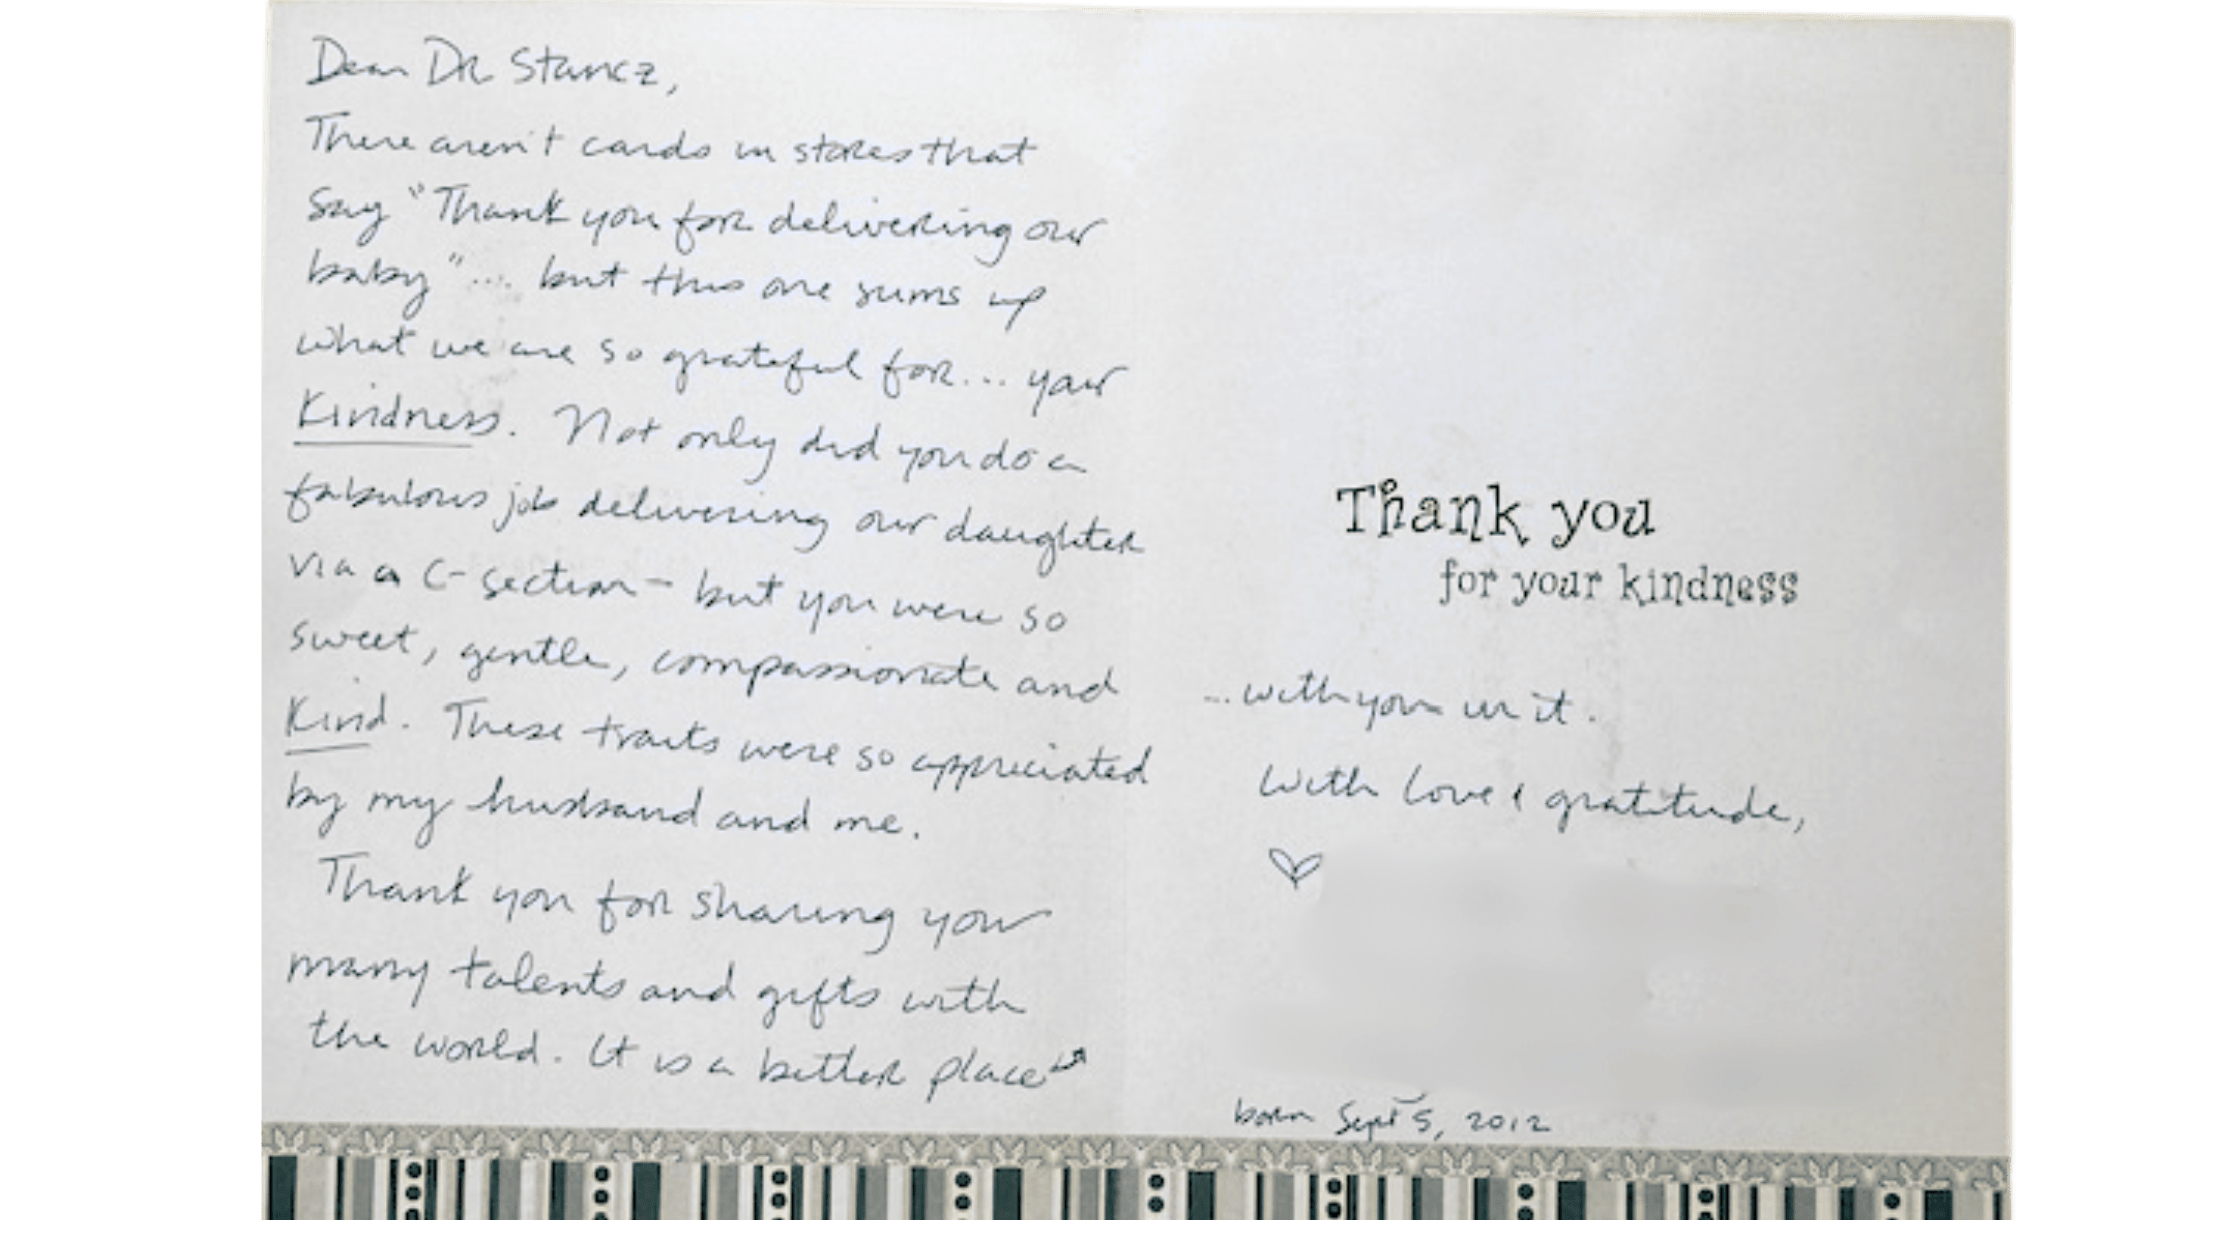 Dear DR Stancz,
There aren't cards in stores that
say "Thank you for delivering our
baby"... but this one sums up
what we are so grateful for... your
Kindness. Not only did you do a
fabulous job delivering our daughter
via a C-section - but you were so
sweet, gentle, compassionate and
Kind. These traits were so appreciated
by my husband and me.
Thank you for sharing your
many talents and gifts with
the world. It is a better place
Thank you
for your kindness
...with you in it.
With love & gratitude,
born Sept 5, 2012